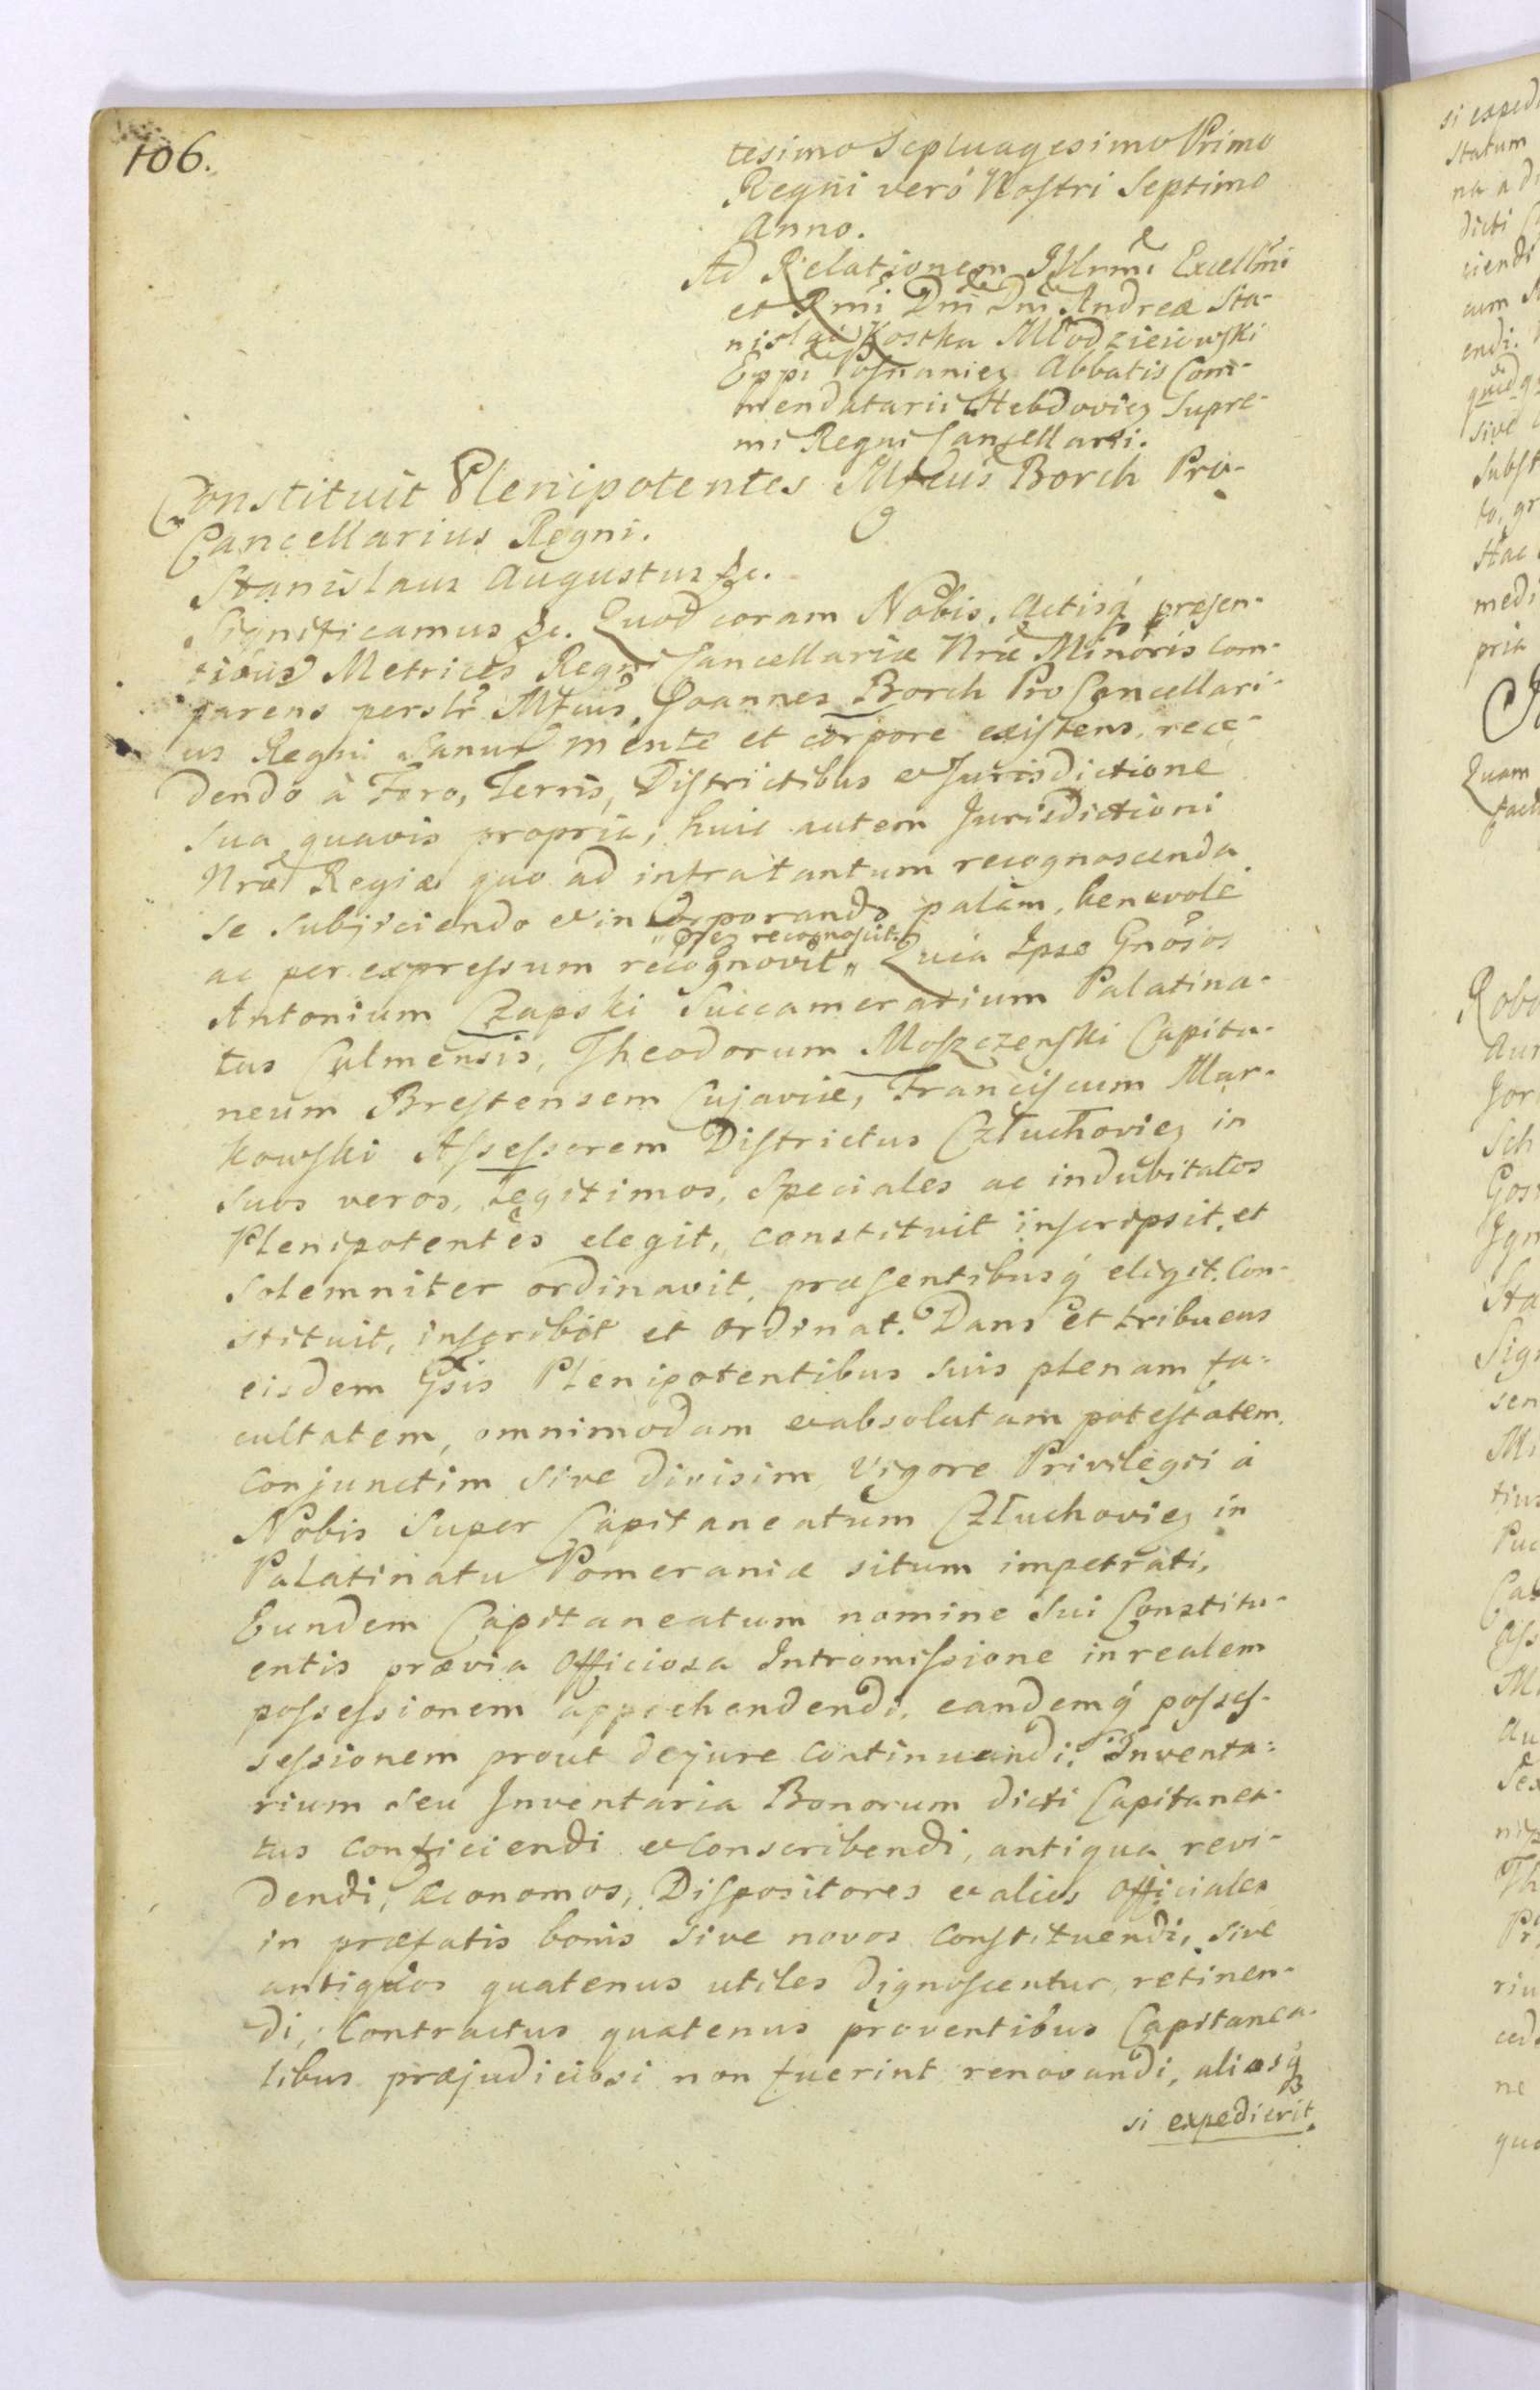 106.
tesimo Septuagesimo Primo
Regni verò Nostri Septimo
Anno.
Ad Relationem Illrmi Excellmi
et Rmi Dni Dni Andreæ Sta-
nislai Kostka Młodzieiowski
Eppi Posnaniez Abbatis Com-
mendatarii Hebdoviez Supre-
mi Regni Cancellarii.
Constituit Plenipotentes Mfcus Borch Pro-
Cancellarius Regni.
Stanislaus Augustus &c.
Significamus &c. Quod coram Nobis, Actisq́ præsen-
tibus Metrices Regni Cancellariæ Nræ Minoris com-
parens persltr Mfcus Joannes Borch Pro Cancellari-
us Regni sanus mente et corpore existens, rece-
dendo à Foro, Terris, Districtibus et Jurisdictione
sua quavis propria, huic autem Jurisdictioni
Nræ Regiæ quo ad infratantum recognoscenda
se subjiciendo et incorporando palàm, benevolè
ac per expressum recognovit „ Quia Ipse Gnosos
„ prsez recognoscit
Antonium Czapski Succamerarium Palatina-
tus Culmensis, Theodorum Moszczenski Capita-
neum Brestensem Cujaviæ, Franciscum Mar-
kowski Assessorem Districtus Człuchoviez in
suos veros, legitimos, speciales ac indubitatos
Plenipotentes elegit, constituit inscripsit, et
solemniter ordinavit, præsentibusq́ eligit, con-
stituit, inscribit et ordinat. Dans et tribuens
eisdem Gsis Plenipotentibus suis plenam fa-
cultatem, omnimodam et absolutam potestatem,
conjunctim sive divisim, vigore Privilegii à
Nobis super Capitaneatum Człuchoviez in
Palatinatu Pomeraniæ situm impetrati,
Eundem Capitaneatum nomine sui Constitu-
entis prævia Officiosa Intromissione in realem
possessionem apprehendendi, eandemq́ posses-
sessionem prout dejure continuandi. Inventa-
rium seu Inventaria Bonorum dicti Capitanea-
tus conficiendi et conscribendi, antiqua revi-
dendi, æconomos, Dispositores et alios Officiales
in præfatis bonis sive novos constituendi, sive
antiquos quatenus utiles dignoscentur, retinen-
di, Contractus quatenus proventibus Capitanea-
libus præjudiciosi non fuerint renovandi, aliosq́
si expedierit